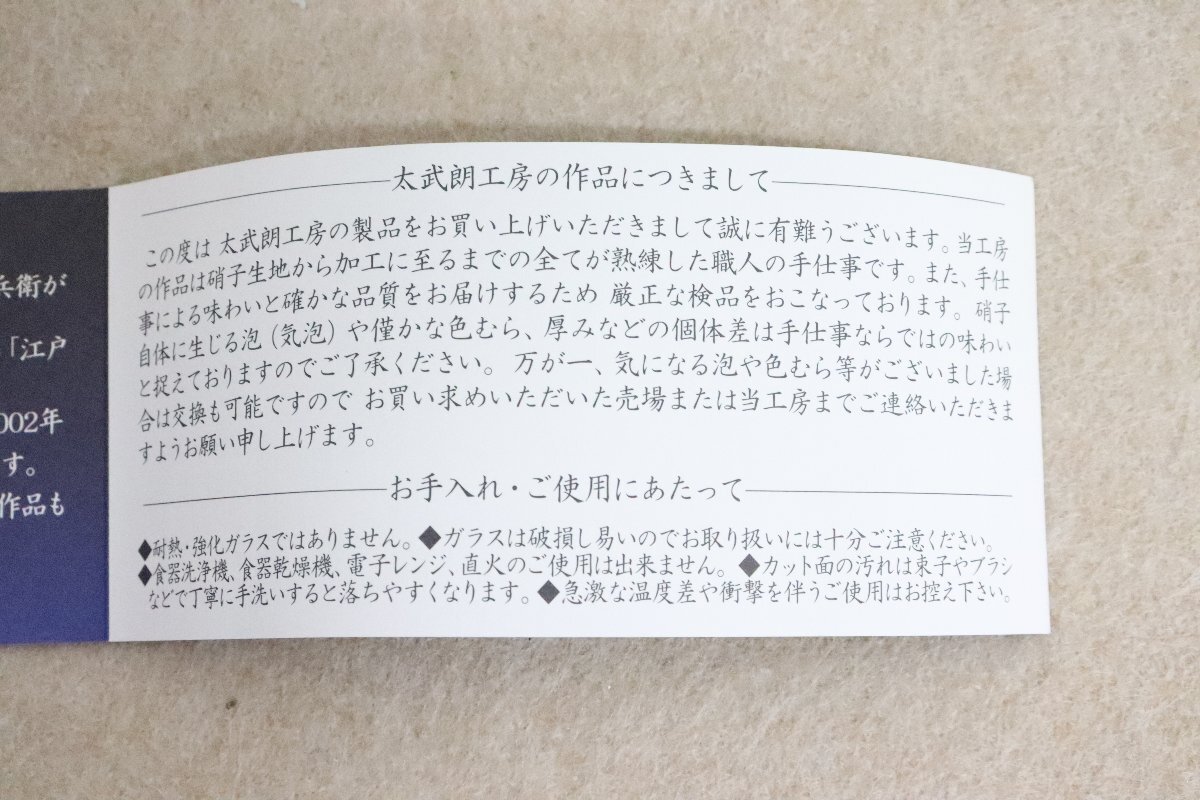 兵衛が
「江戸
002年
す。
作品も
太武朗工房の作品につきまして
この度は 太武朗工房の製品をお買い上げいただきまして誠に有難うございます。当工房
の作品は硝子生地から加工に至るまでの全てが熟練した職人の手仕事です。また、手仕
事による味わいと確かな品質をお届けするため 厳正な検品をおこなっております。硝子
自体に生じる泡（気泡）や僅かな色むら、厚みなどの個体差は手仕事ならではの味わい
と捉えておりますのでご了承ください。 万が一、気になる泡や色むら等がございました場
合は交換も可能ですので お買い求めいただいた売場または当工房までご連絡いただきま
すようお願い申し上げます。
お手入れ・ご使用にあたって
◆耐熱・強化ガラスではありません。◆ガラスは破損し易いのでお取り扱いには十分ご注意ください。
◆食器洗浄機、食器乾燥機、電子レンジ、直火のご使用は出来ません。◆カット面の汚れは束子やブラシ
などで丁寧に手洗いすると落ちやすくなります。◆急激な温度差や衝撃を伴うご使用はお控え下さい。